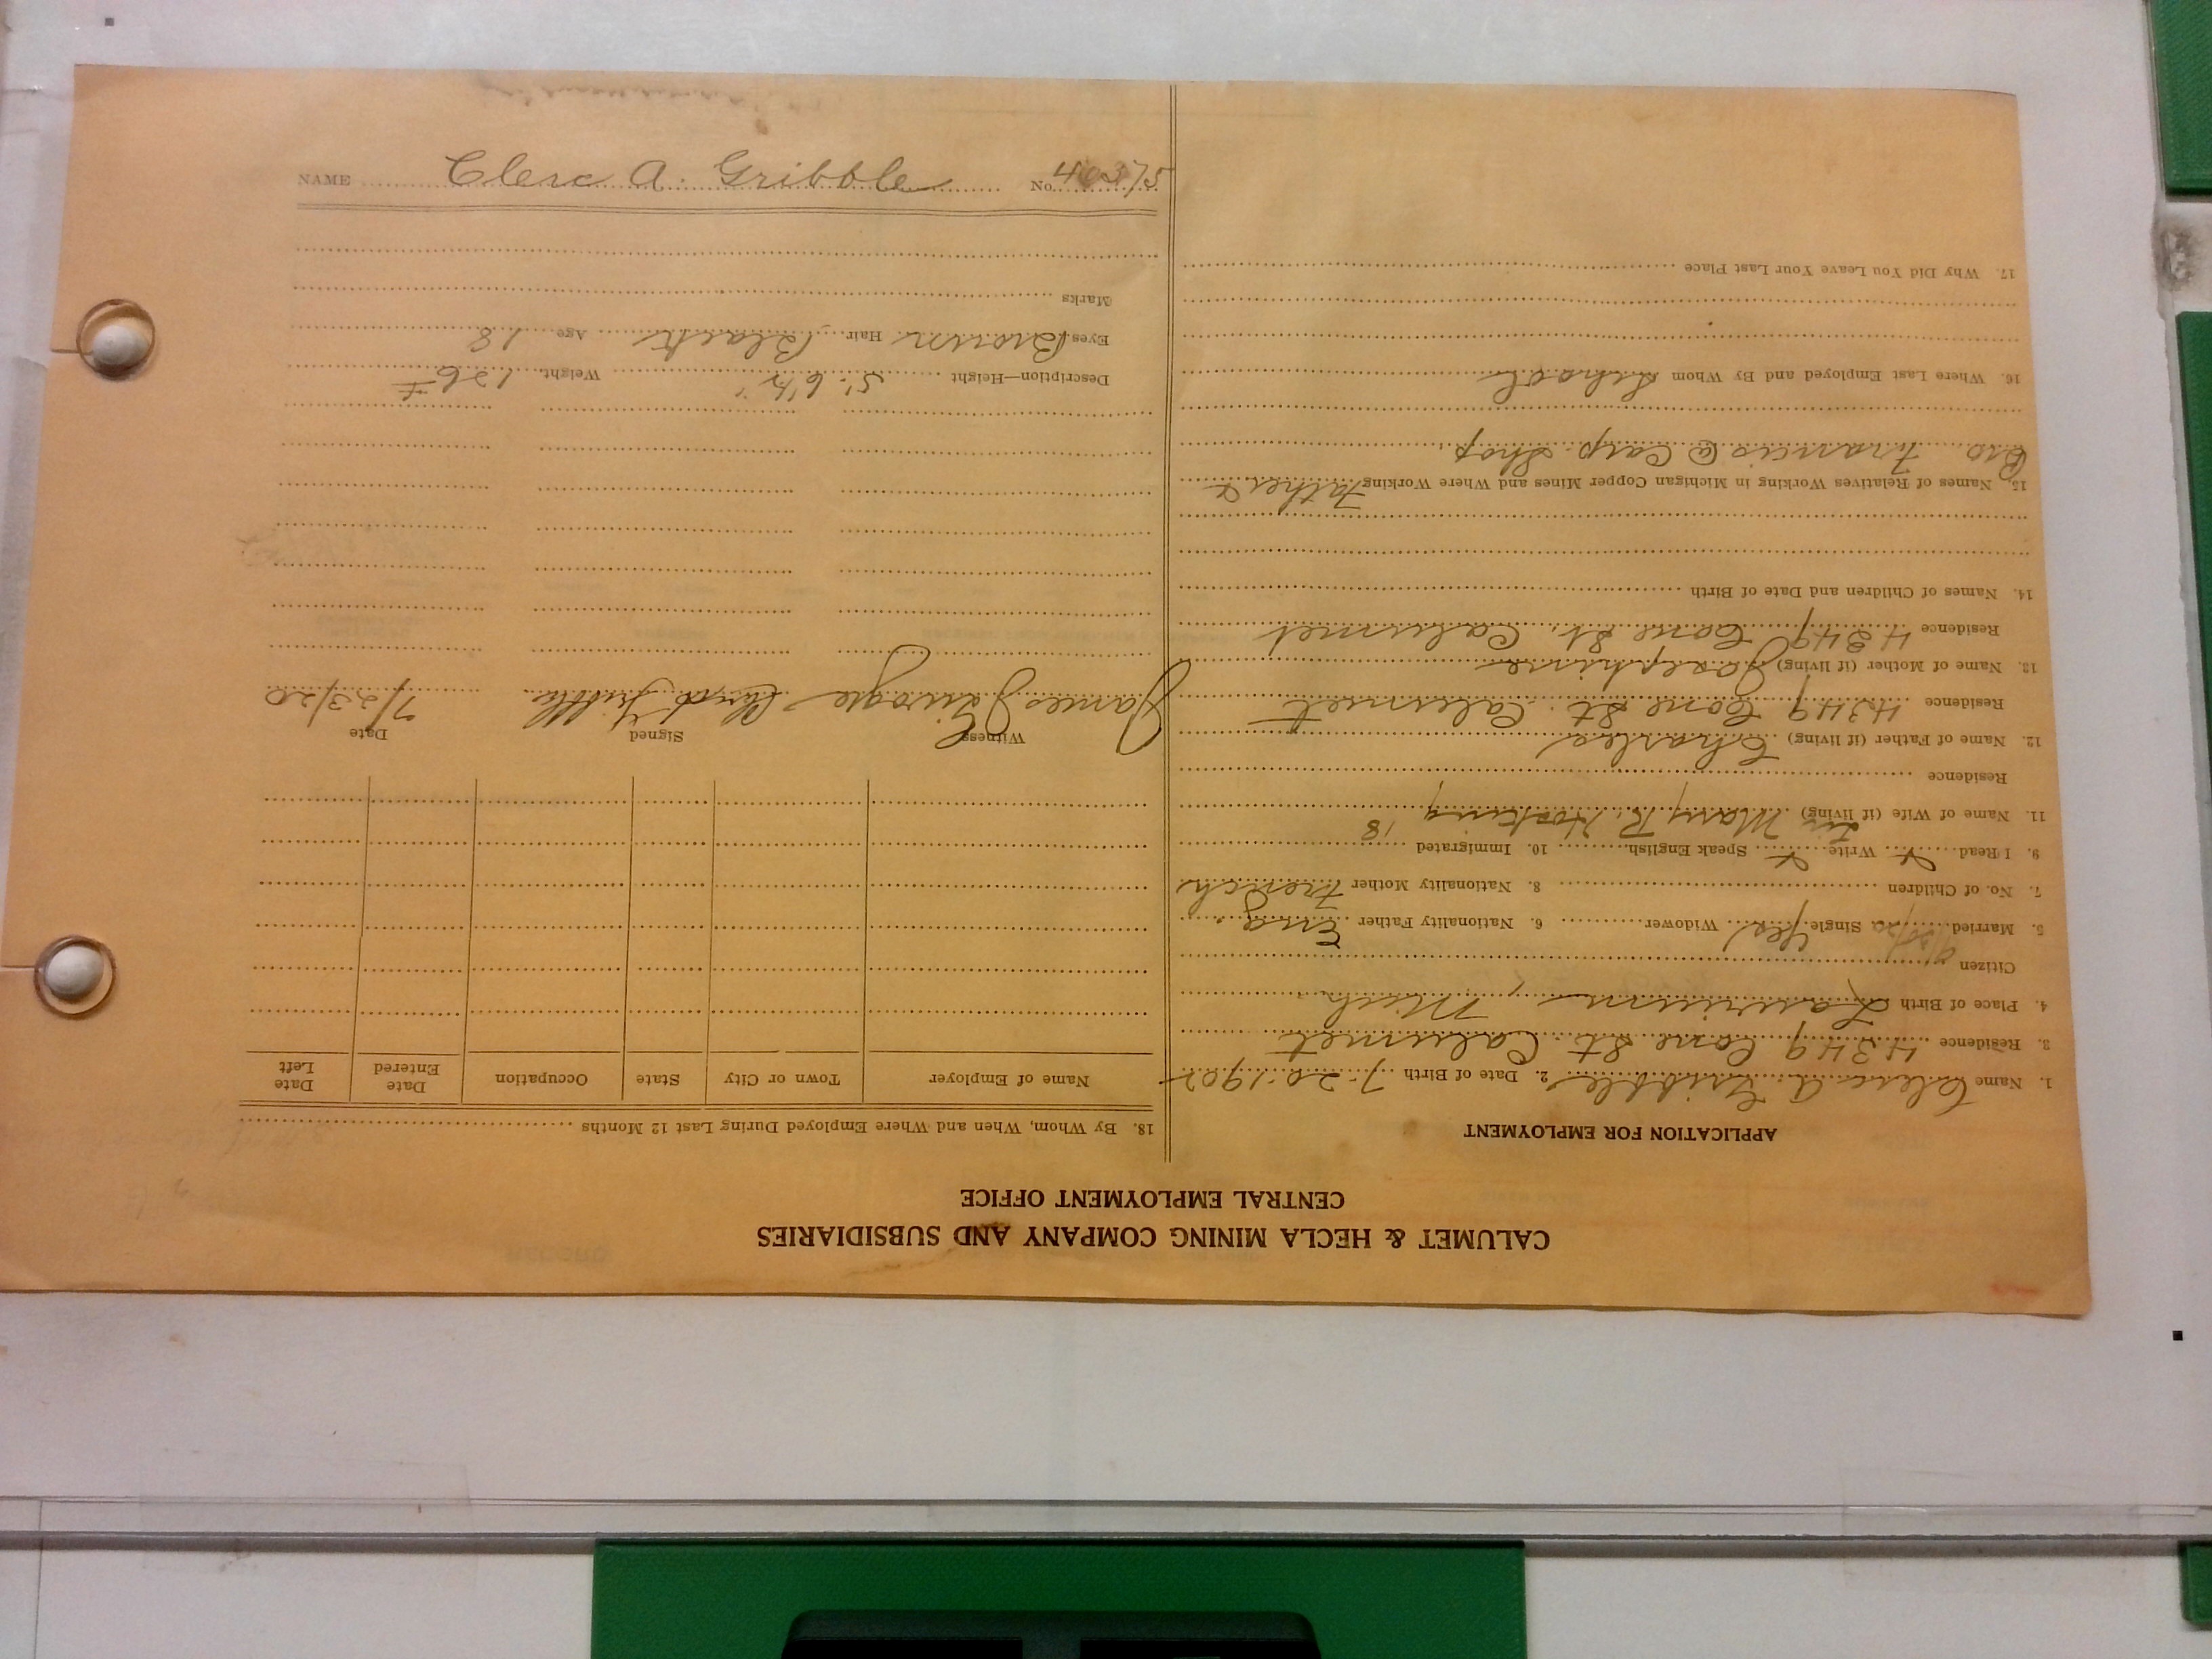 CALUMET & HECLA MINING COMPANY AND SUBSIDIARIES
CENTRAL EMPLOYMENT OFFICE
APPLICATION FOR EMPLOYMENT
1. Name Clere A. Gribble 2. Date of Birth 7-20-1902
3. Residence 4349 Cone St. Calumet
4. Place of Birth Laurium, Mich
Citizen
5. Married Single Yes Widower 6. Nationality Father Eng.
7. No. of Children 8. Nationality Mother French
9. I Read Write Speak English 10. Immigrated 18
11. Name of Wife (if living) Mary R. Hosking
Residence
12. Name of Father (if living) Charles
Residence 4349 Cone St. Calumet
13. Name of Mother (if living) Josephine
Residence 4349 Cone St. Calumet
14. Names of Children and Date of Birth
15. Names of Relatives Working in Michigan Copper Mines and Where Working Father &
Bro. Francis @ Carp. Shop.
16. Where Last Employed and By Whom School
17. Why Did You Leave Your Last Place
18. By Whom, When and Where Employed During Last 12 Months
Name of Employer Town or City State Occupation Date Entered Date Left
Witness Signed Date
James Gribble 7/23/20
Description—Height 5' 6½" Weight 126 #
Eyes Brown Hair Black Age 18
Marks
NAME Clere A. Gribble No. 40375